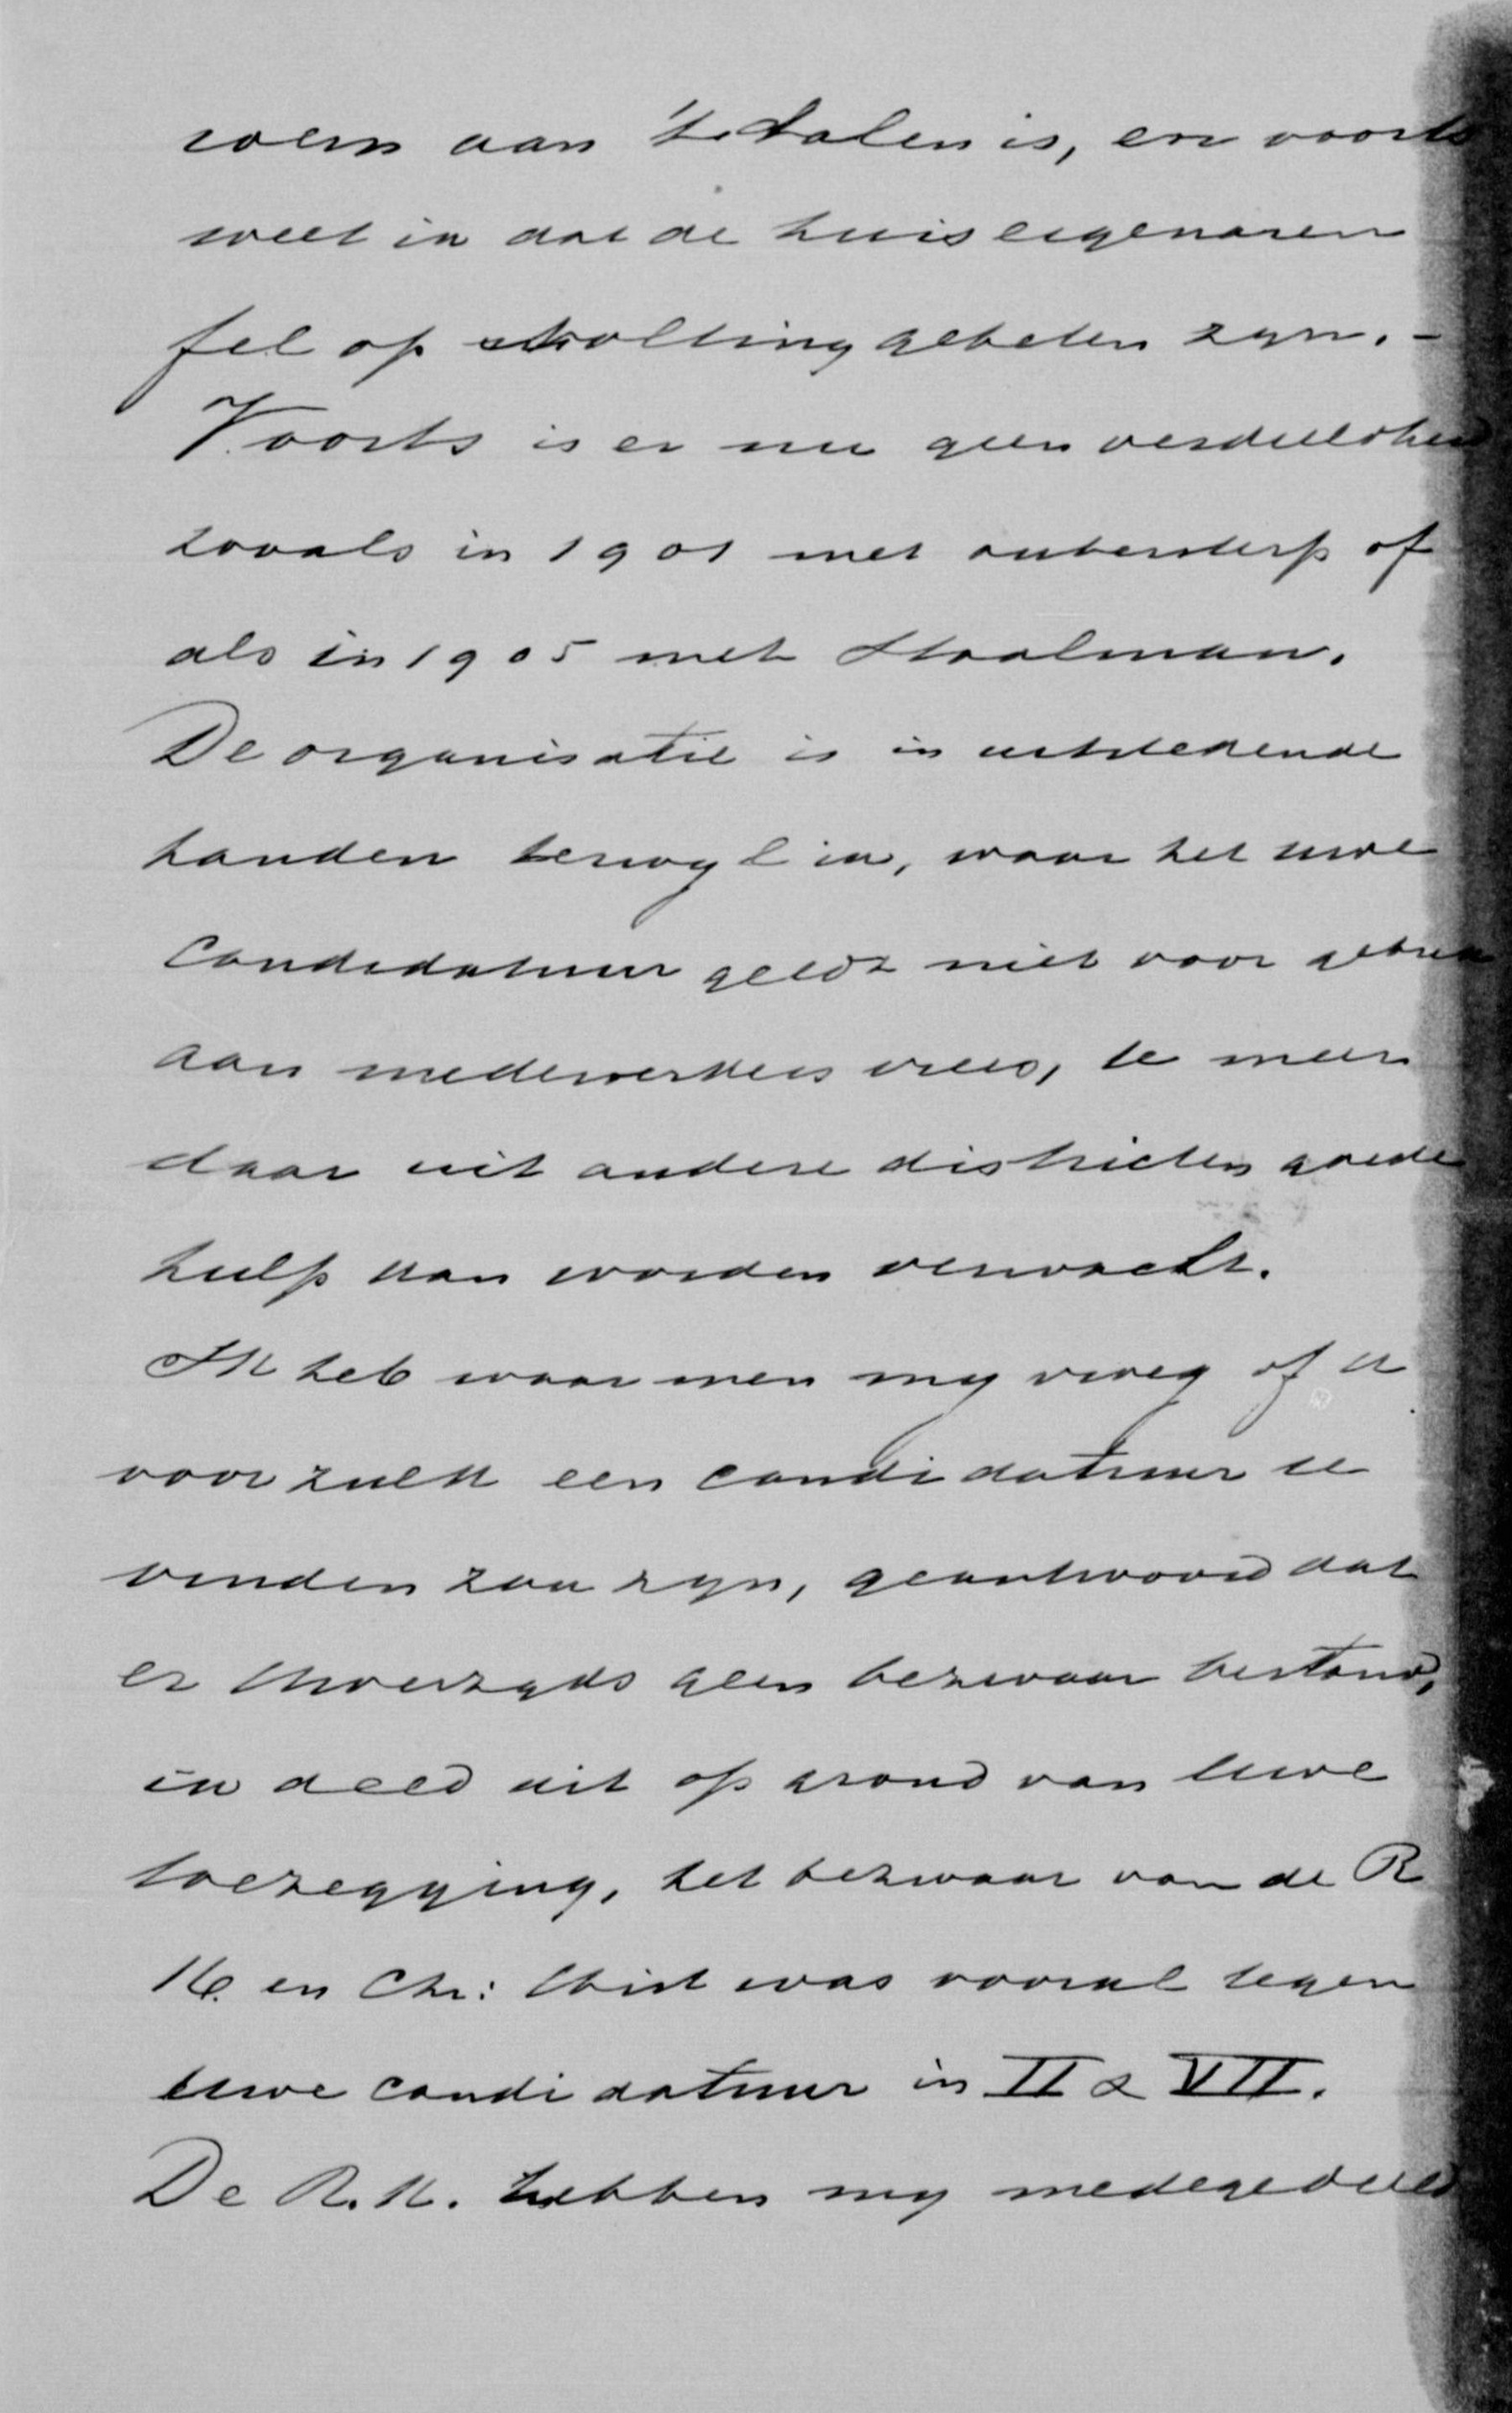 roem aan te dalen is, en voorts
weet ik dat de huiseigenaren
fel op Nolting gebeten zyn. -
Voorts is er nu geen verdeeldheid
zooals in 1901 met ontwerp of
als in 1905 met Staalman.
De organisatie is in uitstekende
handen terwyl ik, waar het uwe
Candidatuur geldt niet voor gebrek
aan medewerkers vrees, te meer
daar uit andere districten goede
hulp kan worden verwacht.
Ik heb waar men my vroeg of U
voor zulk een candidatuur te
vinden zou zyn, geantwoord dat
er Uwerzyds geen bezwaar bestond,
ik deed dit op grond van Uwe
toezegging, het bezwaar van de R
K. en Chr: Hist was vooral tegen
Uwe candidatuur in II & VII.
De R.K. hebben my medegedeeld